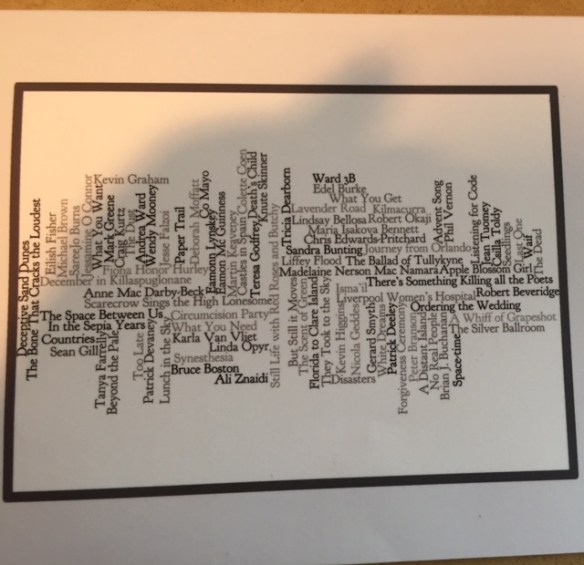 Deceptive Sand Dunes
The Bone That Cracks the Loudest
Eilish Fisher
Michael Brown
Saree Jo Burns
O Connor
What You Want
Kevin Graham
Mark Greene
Craig Kurtz
The Dust
Andrea Ward
Wendy Mooney
Jesse Falzoi
Paper Trail
Deborah Moffatt
Co Mayo
Eamonn
Eamon Mc Guinness
Martin Keaveney
Castles in Spain
Colette Coen
Teresa Godfrey
Death's Child
Knute Skinner
Fiona Honor Hurley
December in Killaspuglonane
Anne Mac Darby-Beck
Scarecrow Sings the High Lonesome
The Space Between Us
Circumcision Party
In the Sepia Years
What You Need
Countries
Karla Van Vliet
Sean Gill
Linda Opyr
Synesthesia
Bruce Boston
Ali Znaidi
Tanya Farrelly
Beyond the Pale
Too Late
Patrick Devaney
Lunch in the Sky
Still Life with Red Roses and Butchy
Tricia Dearborn
Ward 3B
Edel Burke
What You Get
Lavender Road
Kilmacurra
Lindsay Bellosa
Robert Okaji
Maria Isakova Bennett
Chris Edwards-Pritchard
Sandra Bunting
Journey from Orlando
Liffey Flood
The Ballad of Tullykyne
Madelaine Nerson Mac Namara
Apple Blossom Girl
There's Something Killing all the Poets
Isma'il
Liverpool Women's Hospital
Robert Beveridge
Ordering the Wedding
A Whiff of Grapeshot
The Silver Ballroom
Advent Song
Phil Vernon
Listening for Code
Jean Tuomey
Cailla Toldy
Seedlings
Sixty One
Waif
The Dead
But Still it Moves
The Scent of Green
Florida to Clare Island
They Took to the Sky
Kevin Higgins
Disasters
Nicola Geddes
Gerard Smyth
White Dwarf
Patrick Deeley
Forgiveness Ceremony
Peter Branson
A Distant Island
No Real People
Brian J. Buchanan
Space-time